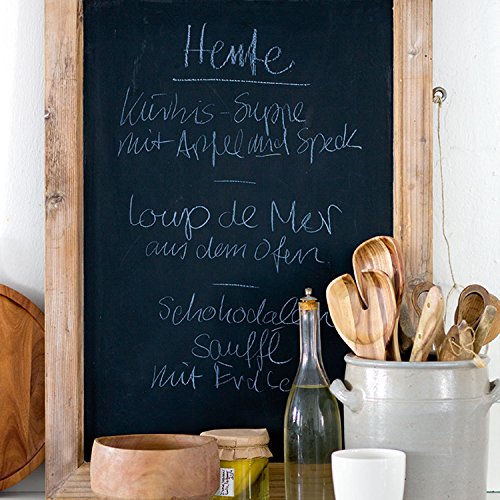 Heute
Kürbis-Suppe
mit Apfel und Speck
Loup de Mer
aus dem Ofen
Schokoladen
Soufflé
mit